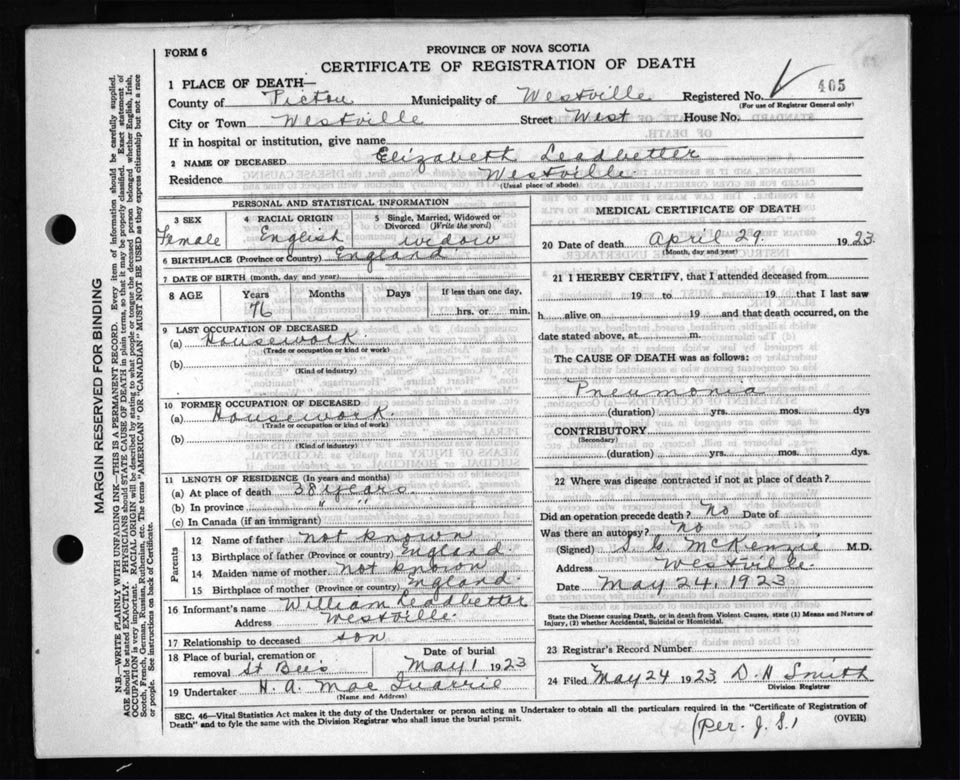 FORM 6
PROVINCE OF NOVA SCOTIA
CERTIFICATE OF REGISTRATION OF DEATH
1 PLACE OF DEATH—
County of Pictou Municipality of Westville Registered No. 405
(For use of Registrar General only)
City or Town Westville Street West House No.
If in hospital or institution, give name
2 NAME OF DECEASED Elizabeth Leadbetter
Residence Westville
(Usual place of abode)
PERSONAL AND STATISTICAL INFORMATION
3 SEX Female
4 RACIAL ORIGIN English
5 Single, Married, Widowed or Divorced (Write the word) widow
6 BIRTHPLACE (Province or Country) England
7 DATE OF BIRTH (month, day, and year)
8 AGE Years Months Days If less than one day,
76 hrs. or min.
9 LAST OCCUPATION OF DECEASED
(a) Housework
(Trade or occupation or kind or work)
(b)
(Kind of industry)
10 FORMER OCCUPATION OF DECEASED
(a) Housework.
(Trade or occupation or kind or work)
(b)
(Kind of industry)
11 LENGTH OF RESIDENCE (In years and months)
(a) At place of death 38 years.
(b) In province " "
(c) In Canada (if an immigrant)
Parents
12 Name of father not known
13 Birthplace of father (Province or country) England.
14 Maiden name of mother not known
15 Birthplace of mother (Province or country) England.
16 Informant's name William Leadbetter
Address Westville.
17 Relationship to deceased son
18 Place of burial, cremation or removal St Bees Date of burial May 1 1923
19 Undertaker H. A. Mac Quarrie
(Name and Address)
MEDICAL CERTIFICATE OF DEATH
20 Date of death April 29. 1923.
(Month, day and year)
21 I HEREBY CERTIFY, that I attended deceased from
19 to 19 that I last saw
h alive on 19 and that death occurred, on the
date stated above, at m.
The CAUSE OF DEATH was as follows:
Pneumonia
(duration) yrs. mos. dys
CONTRIBUTORY
(Secondary)
(duration) yrs. mos. dys.
22 Where was disease contracted if not at place of death?
Did an operation precede death? No Date of
Was there an autopsy? No
(Signed) S. G. McKenzie M.D.
Address Westville.
Date May 24, 1923
State the Disease causing Death, or in death from Violent Causes, state (1) Means and Nature of
Injury, (2) whether Accidental, Suicidal or Homicidal.
23 Registrar's Record Number
24 Filed May 24 1923 D. H Smith
Division Registrar
SEC. 46—Vital Statistics Act makes it the duty of the Undertaker or person acting as Undertaker to obtain all the particulars required in the "Certificate of Registration of
Death" and to fyle the same with the Division Registrar who shall issue the burial permit.
(OVER)
(Per. J. S.)
MARGIN RESERVED FOR BINDING
N.B.—WRITE PLAINLY WITH UNFADING INK—THIS IS A PERMANENT RECORD. Every item of information should be carefully supplied.
AGE should be stated EXACTLY. PHYSICIANS should STATE CAUSE OF DEATH in plain terms, so that it may be properly classified. Exact statement of
OCCUPATION is very important. RACIAL ORIGIN will be described by stating to what people or tongue the deceased person belonged whether English, Irish,
Scotch, French, German, Russian, Ruthenian, etc. The terms "AMERICAN" OR "CANADIAN" MUST NOT BE USED as they express citizenship but not a race
or people. See instructions on back of Certificate.